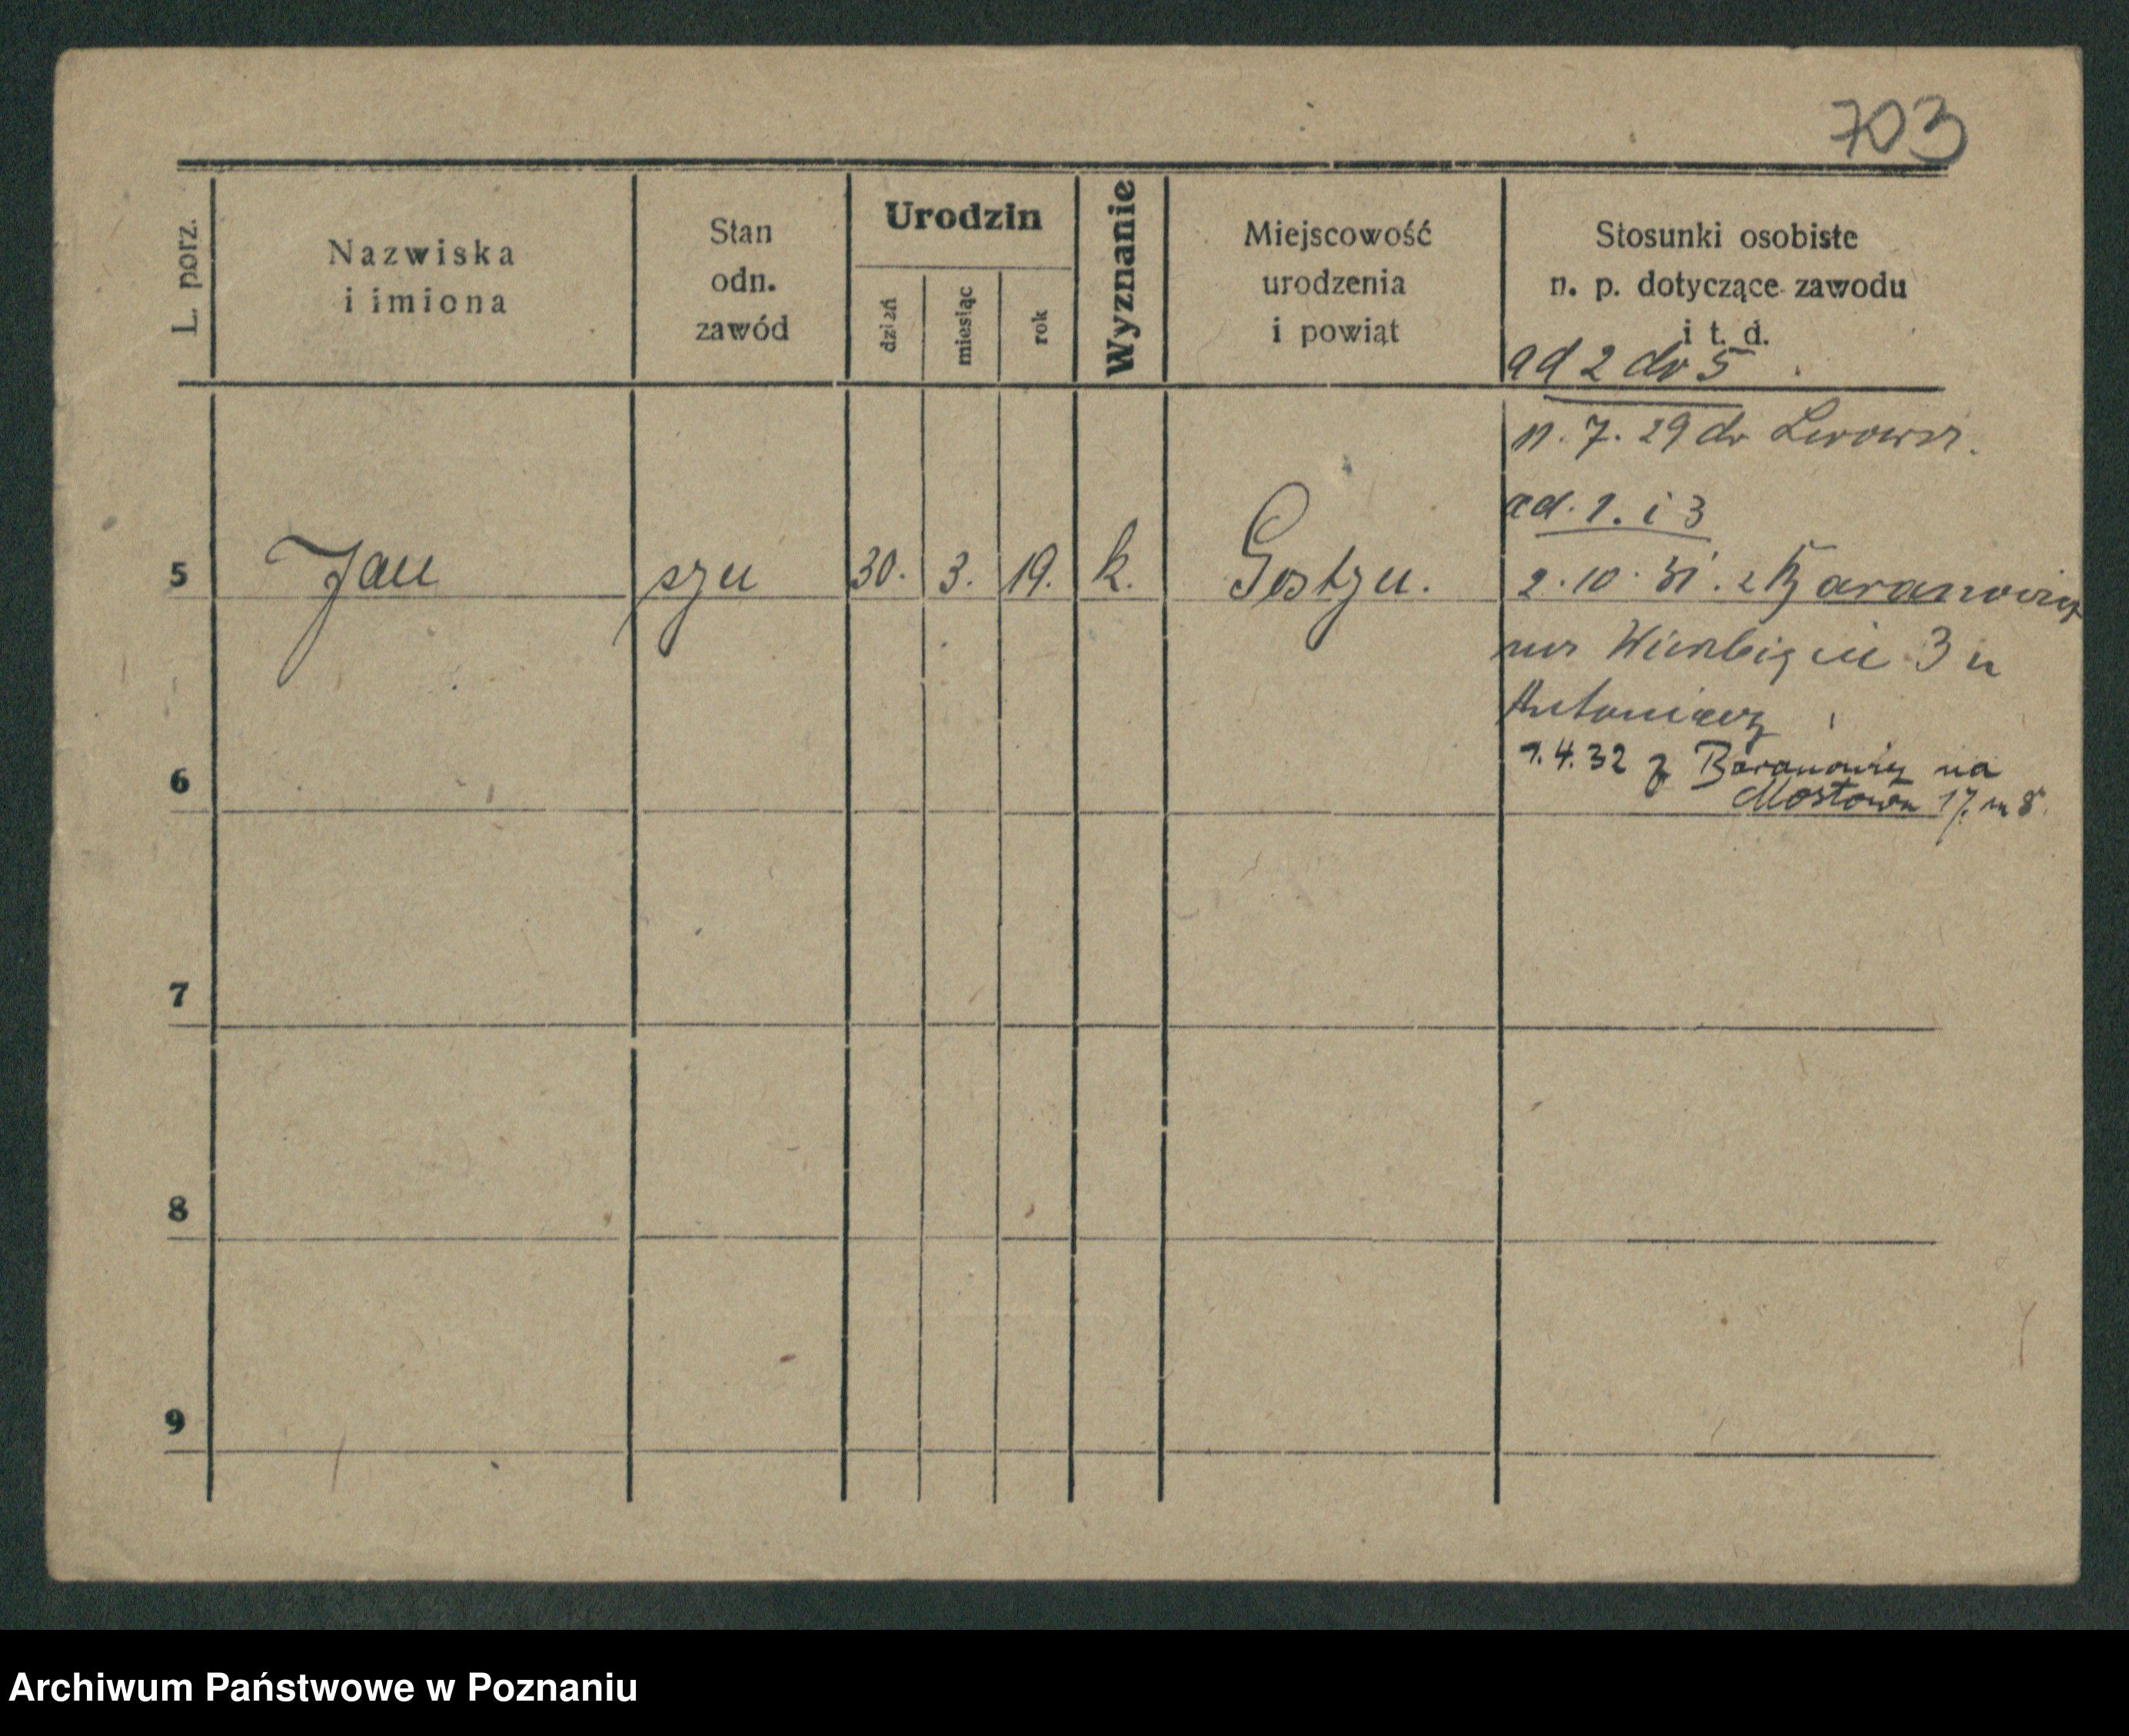 703
L. porz.
Nazwiska
i imiona
Stan
odn.
zawód
Urodzin
dzień
miesiąc
rok
Wyznanie
Miejscowość
urodzenia
i powiąt
Stosunki osobiste
n. p. dotyczące zawodu
i t. d.
ad 2 do 5
11. 7. 29 do Lwowa.
ad. 1. i 3
5 Jan syn 30. 3. 19. k. Gostyn.
2. 10. 31. z Baranowicz
na 3 u
Antoniewicz
1.4.32 z Baranowicz na
6 Mostowa 17. m 8.
7
8
9
Archiwum Państwowe w Poznaniu